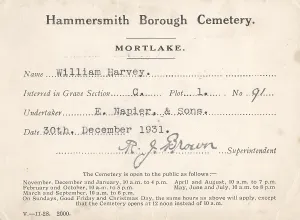 Hammersmith Borough Cemetery.
MORTLAKE.
Name William Harvey.
Interred in Grave Section C. Plot 1. No 91
Undertaker E. Napier, & Sons.
Date 30th. December 1931.
R. J. Brown
Superintendent
The Cemetery is open to the public as follows:—
November, December and January, 10 a.m. to 4 p.m. April and August, 10 a.m. to 7 p.m.
February and October, 10 a.m. to 5 p.m. May, June and July, 10 a.m. to 8 p.m.
March and September, 10 a.m. to 6 p.m.
On Sundays, Good Friday and Christmas Day, the same hours as above will apply, except
that the Cemetery opens at 12 noon instead of 10 a.m.
V.—11-28. 2000.